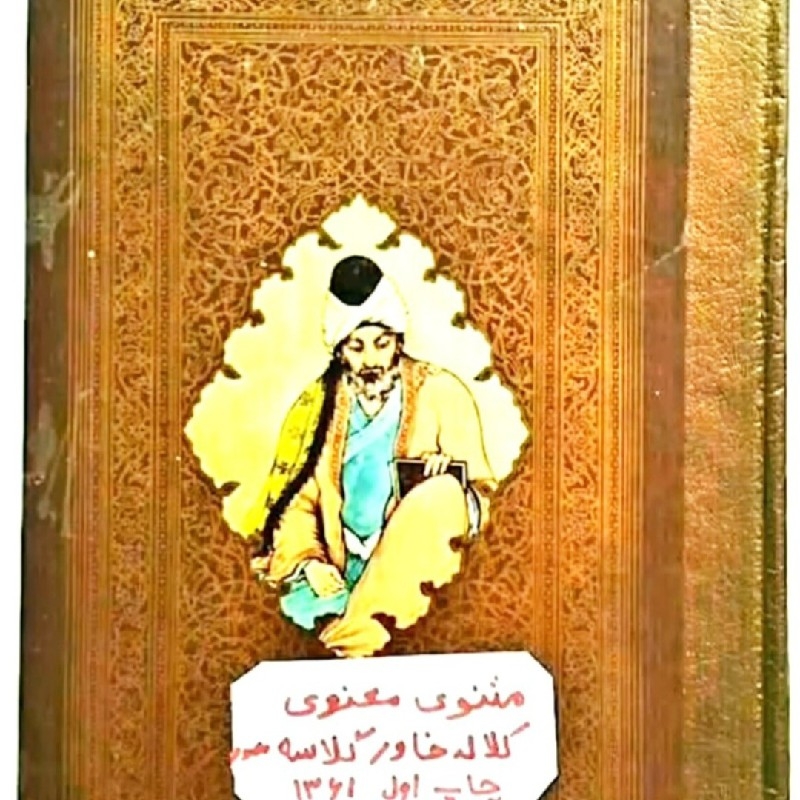 مثنوی معنوی
کلاله خاور گلاسه
چاپ اول ۱۳۶۱